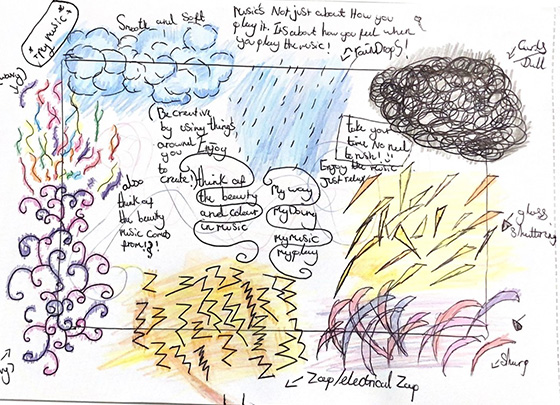 *My music*
Smooth and Soft
Music's Not just about How you
play it. It's about how you feel when
you play the music!
RainDrops!
Dull
Be creative
by using things
around
you
to
create!
Enjoy
take your
time No need
to rush!
Enjoy the music
Just relax
think of
the beauty
and colour
in music
My way
My Doing
My Music
My play
also
think of
the beauty
music comes
from!?!
glass
Shattering
Sharp
Zap/electrical Zap